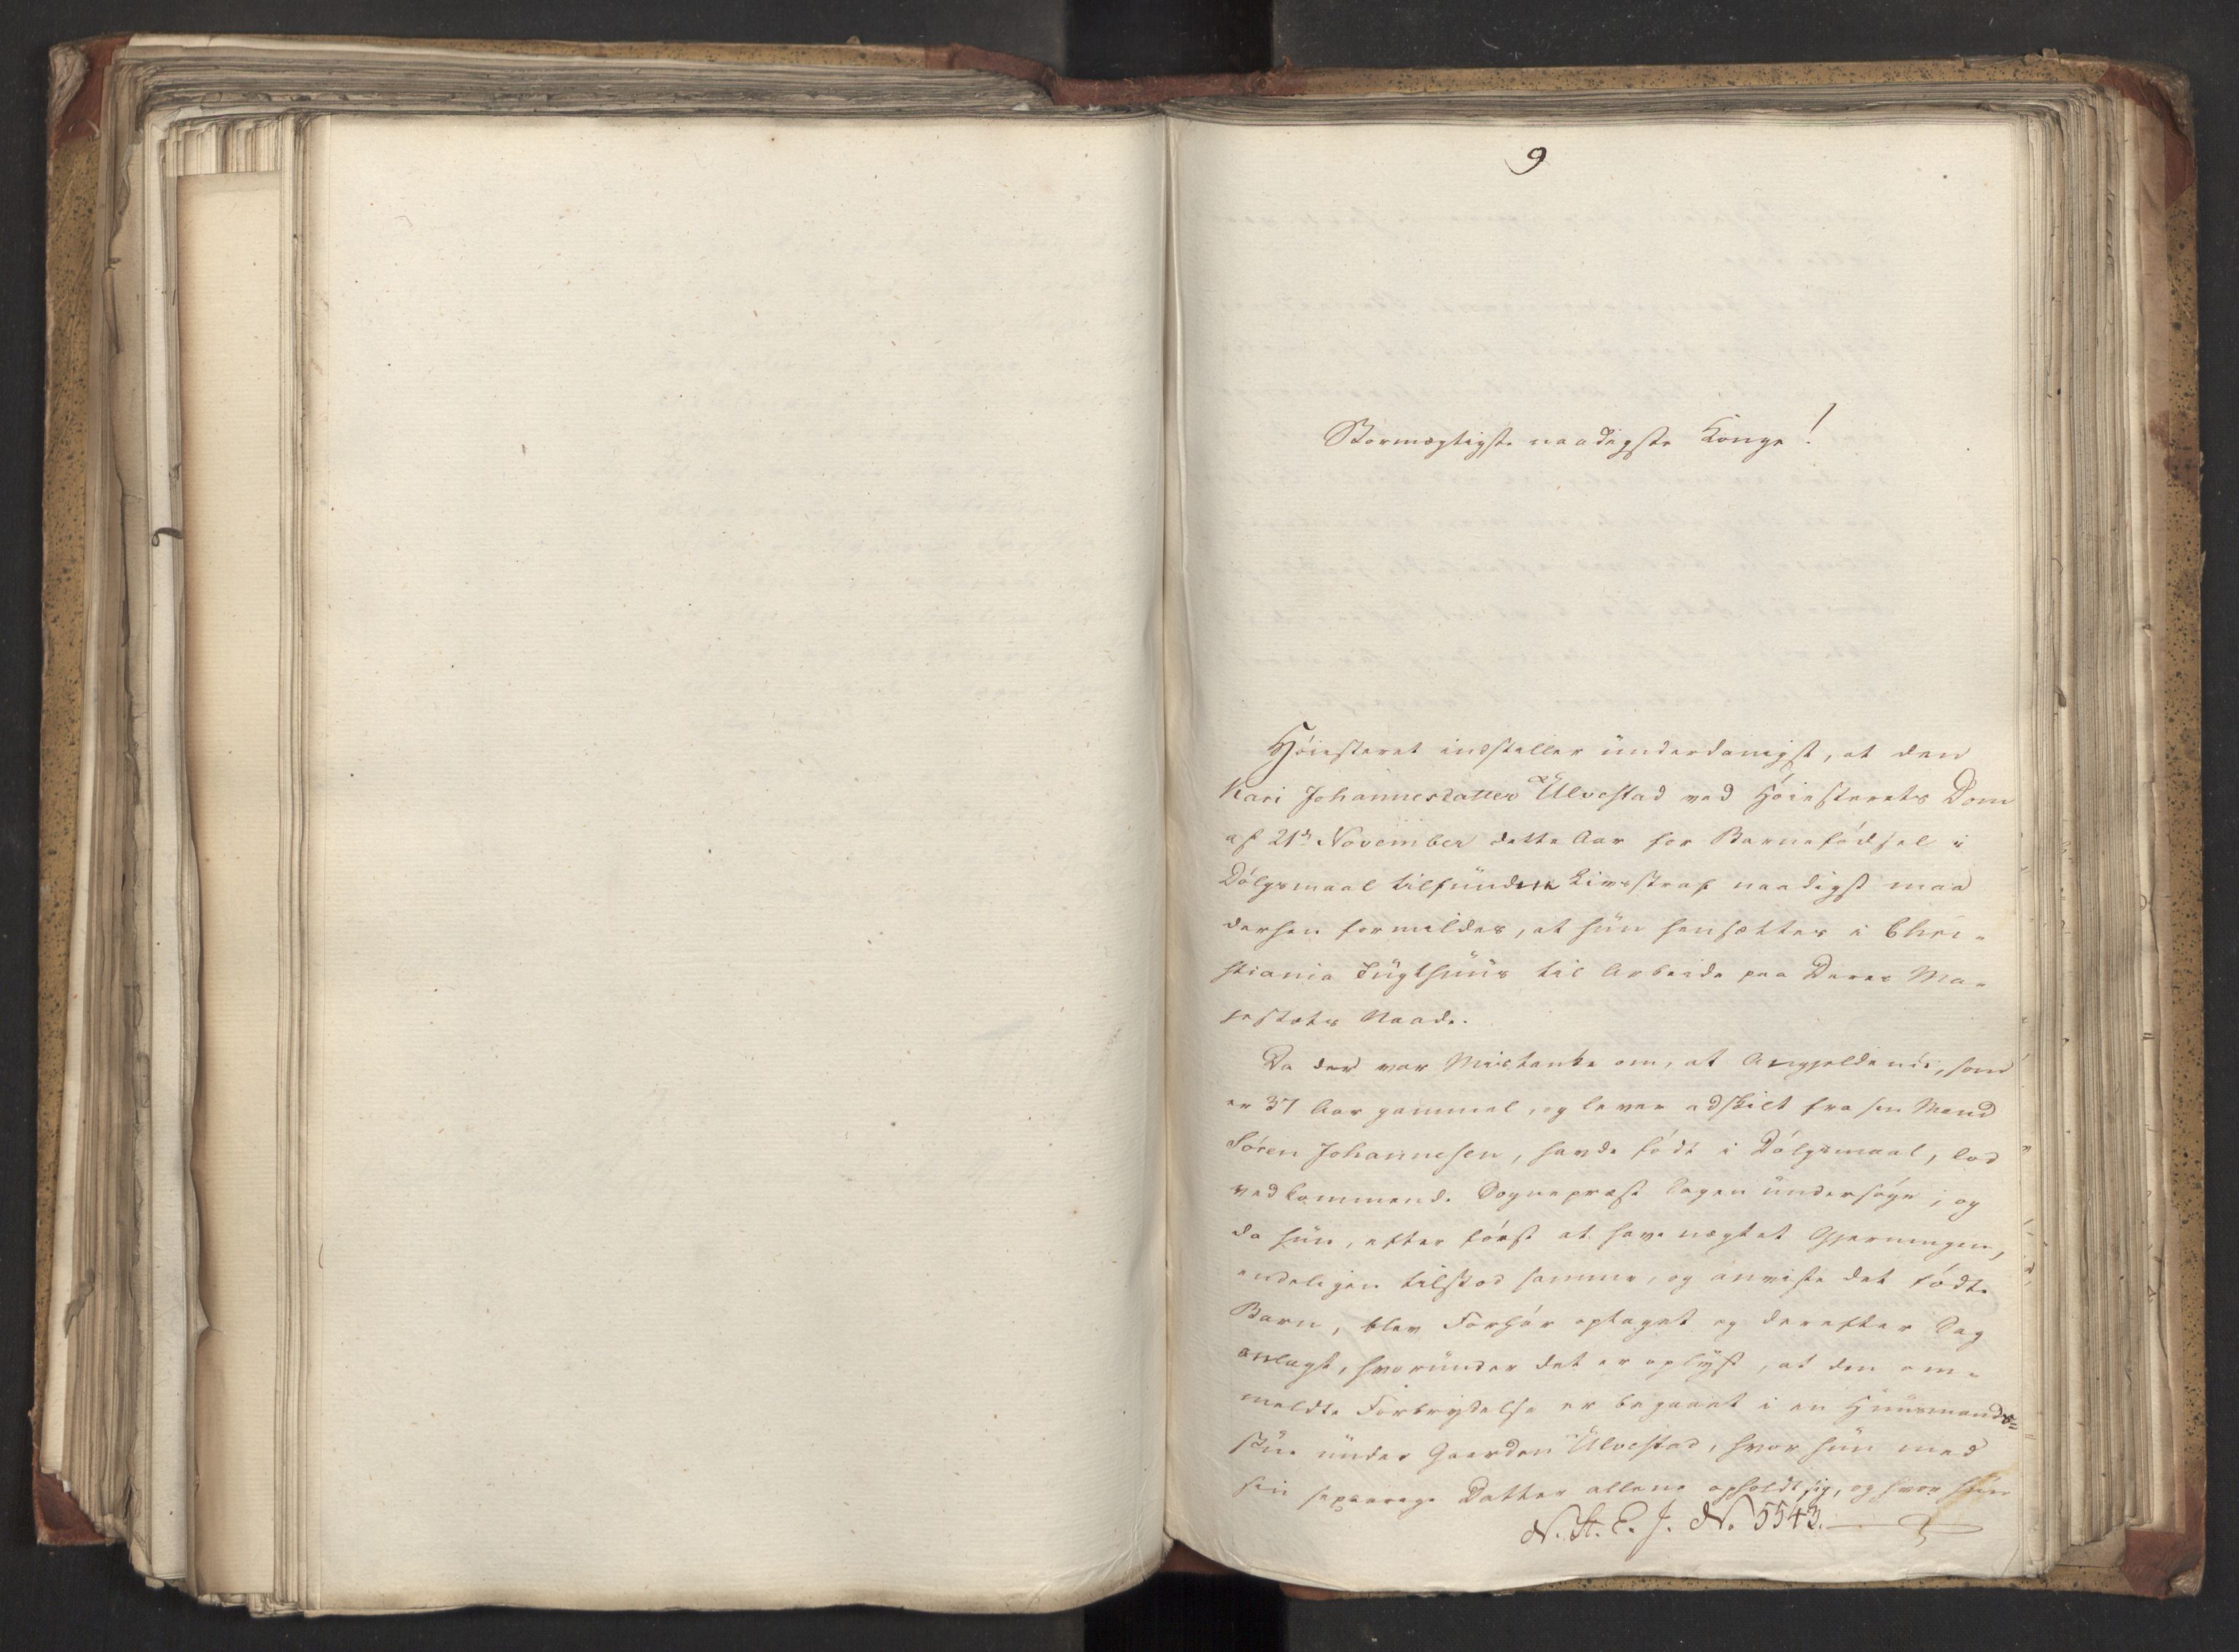 9
Stormægtigste naadigste Konge!
Höiesteret indstiller ünderdanigst, at den
Kari Johannesdatter Ulvestad ved Höiesterets Dom
af 21de November dette Aar for Barnefödsel i
Dölgsmaal tilfündne Livsstraf naadigst maa
derhen formildes, at hün hensættes i Chri-
stiania Tügthüüs til Arbeide paa Deres Ma-
jestæts Naade.
Da der var Mistanke om, at Angjeldende, som
er 37 Aar gammel, og lever adskilt fra sin Mand
Sören Johannesen, havde födt i Dölgsmaal, lod
vedkommende Sognepræst Sagen ündersöge; og
da hün, efter först at have nægtet Gjerningen,
endeligen tilstod samme, og anviste det födte
Barn, blev Forhör optaget og derefter Sag
anlagt, hvoründer det er oplyst, at den om-
meldte Forbrydelse er begaaet i en Hüüsmands-
stüe ünder Gaarden Ulvestad, hvor hün med
sin Datter allene opholdt sig, og hvor hün
N. St. E. J. No 5543.